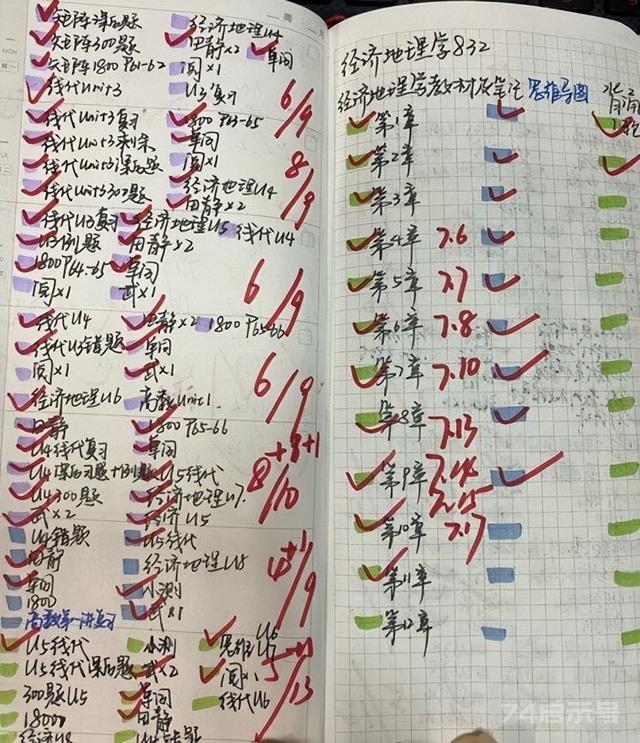 矩阵课后题 经济地理U4
矩阵300题 田静×2 单词
矩阵1800 P61-62 阅×1
线代Unit3 U3复习
6/9
线代Unit3复习 1800 P63-65
线代Unit3 单词
线代Unit3课后题 阅×1
线代Unit3 300题 经济地理U4
田静×2
8/9
线代U3复习 经济地理U5 线代U4
U3例题 田静×2
1800 P64-65 单词
阅×1 武×1
6/9
线代U4 田静×2 1800 P65-66
线代U3错题 单词
阅×1 武×1
经济地理U6 高数Unit1
6/9
田静 1800 P65-66
U4线代复习 单词
U4课后习题+例题 U5线代
U4 300题 经济地理U7
武×2 经济U5
8+1+1/10
U4错题 U5线代
田静 经济地理U8
单词 小测
1800 武×1
高数第一讲复习
4+1/9
U5线代 小测 思维U6
U5线代课后题 武×2 阅×1
300题U5 单词 线代U6
1800 田静
经济U8
5/13
经济地理学832
经济地理学教材及笔记 思维导图
第1章
第2章
第3章
第4章 7.6
第5章 7.7
第6章 7.8
第7章 7.10
第8章 7.13
第9章 7.14
7.15
第10章 7.17
第11章
第12章